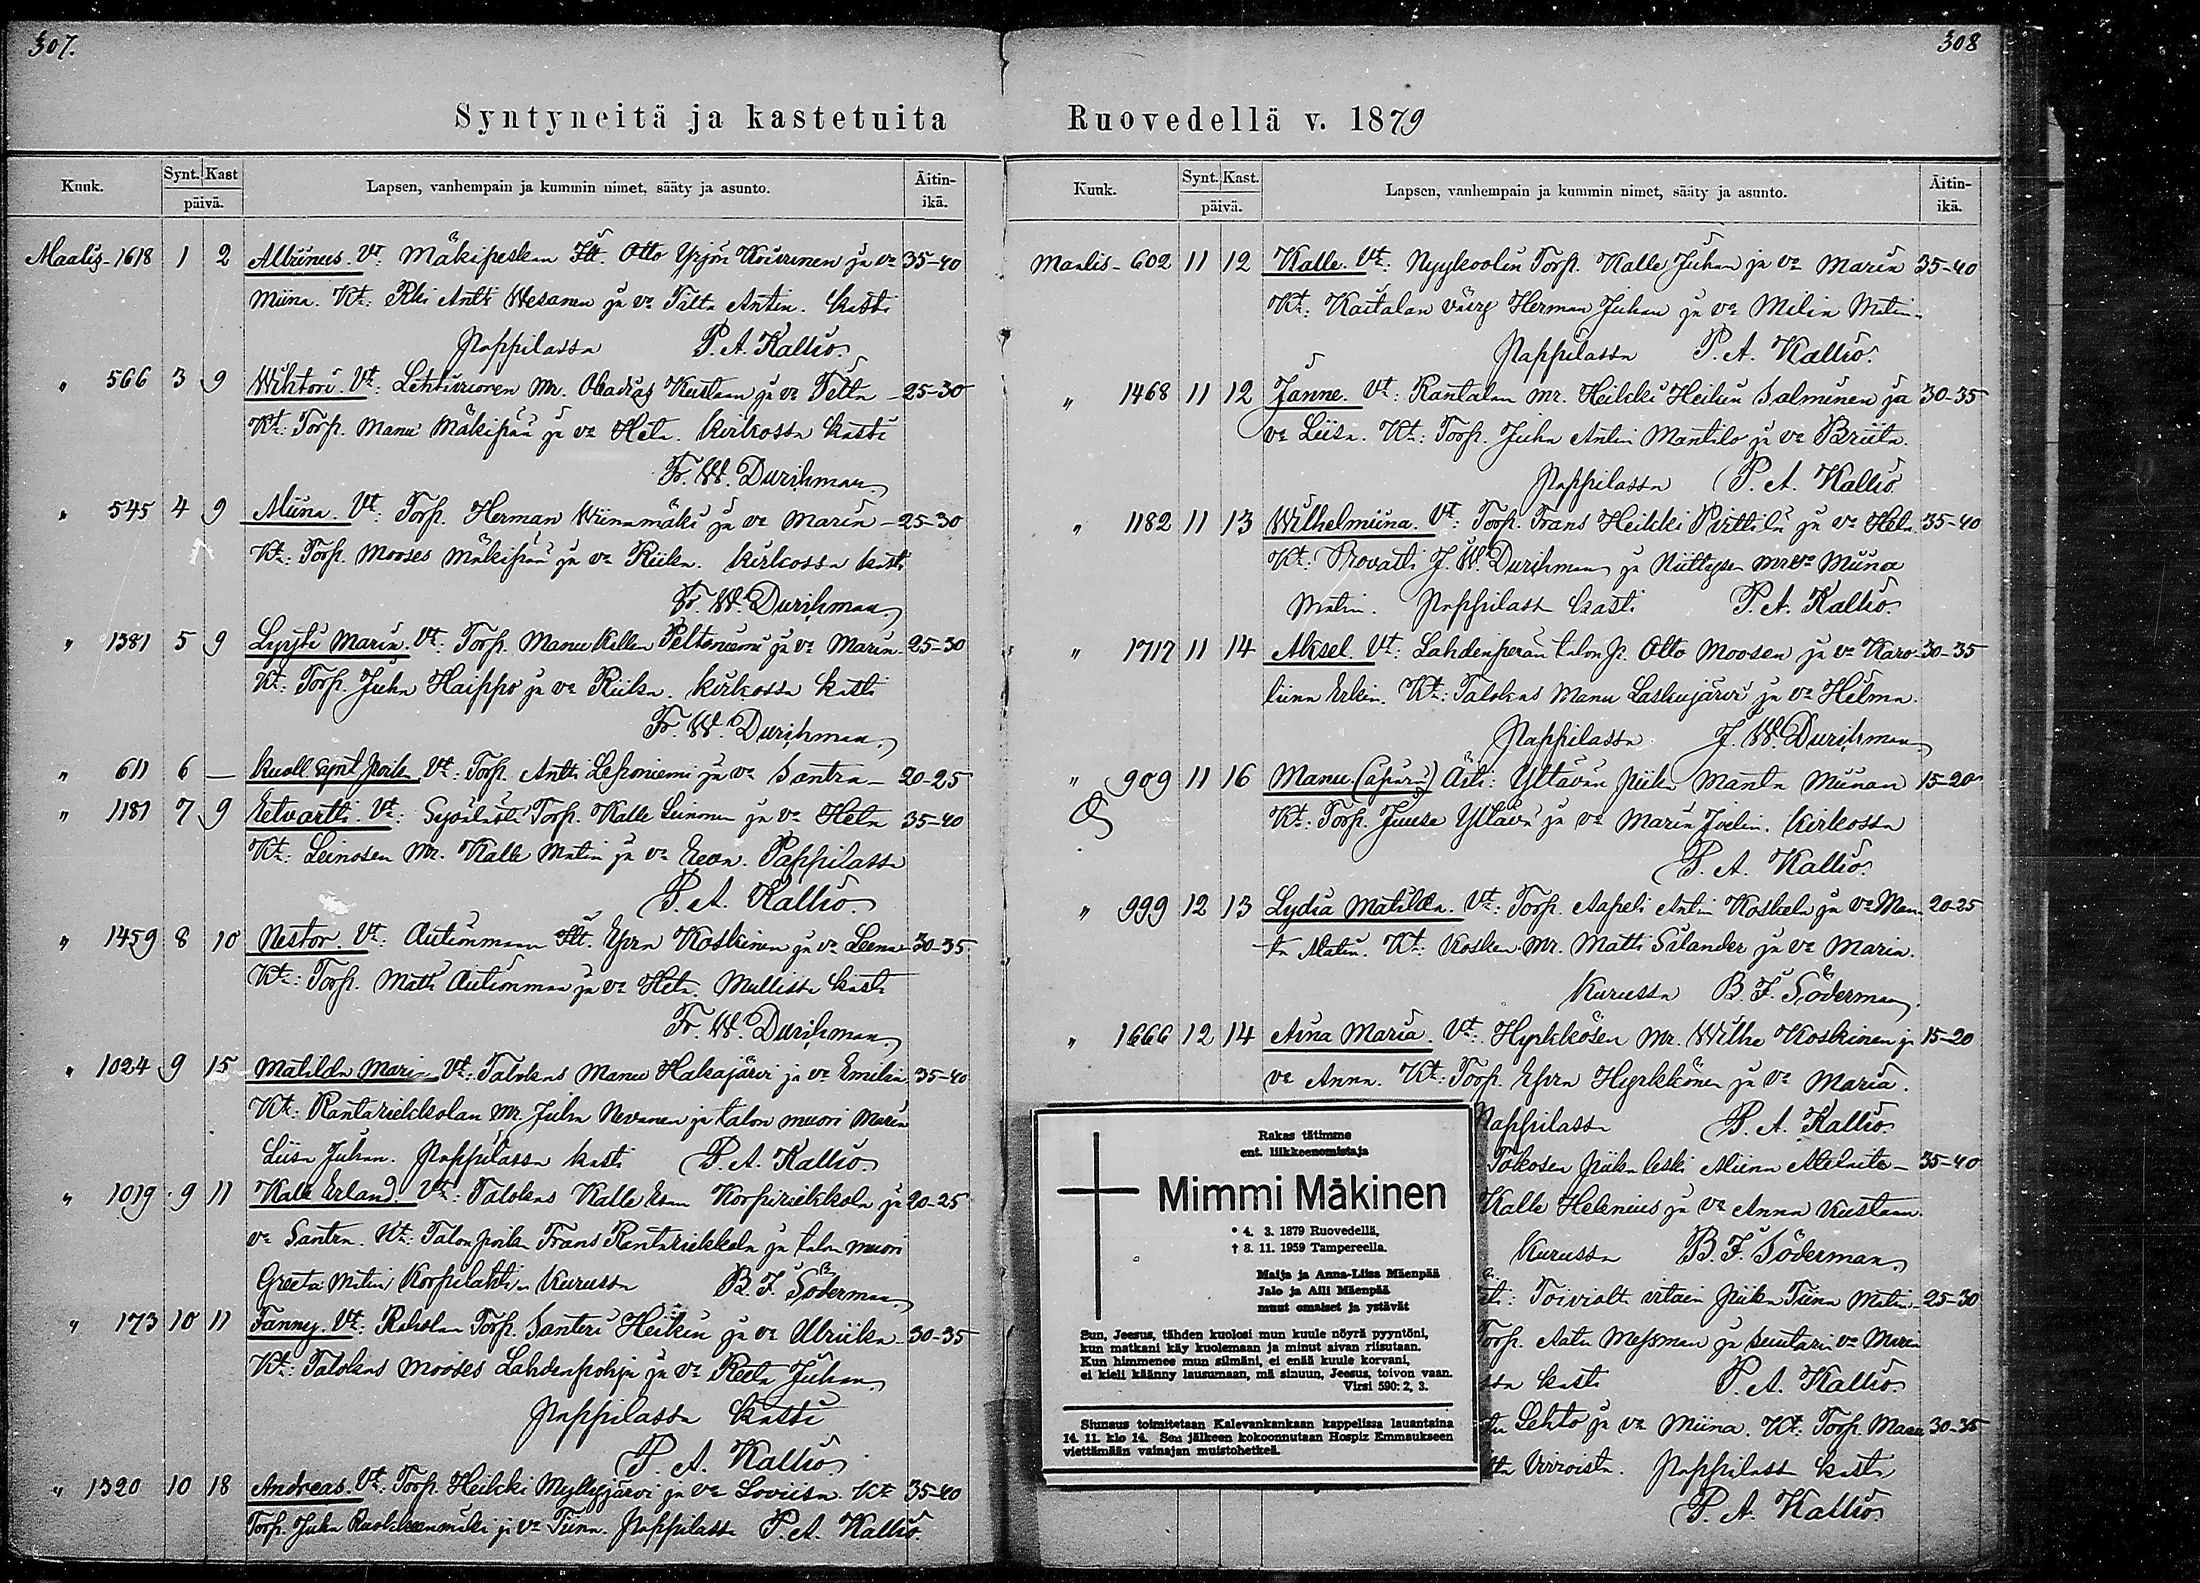 307.
Syntyneitä ja kastetuita
Kuuk.
Synt. Kast
päivä.
Lapsen, vanhempain ja kummin nimet, sääty ja asunto.
Äitin-
ikä.
Maalis- 1618 1 2 Albinus. Vt. Mäkipeskan Itt. Otto Yrjön Koivunen ja vo 35-40
Miina. Kt: Rki Antti Wesanen ja vo Tilta Antin. kasti
Pappilassa P. A. Kallio.
" 566 3 9 Wihtori. Vt: Mr. Obadias Kustaan ja vo 25-30
Kt: Torp. Manu Mäkipää ja vo Heta. kirkossa kasti
Fr. W. Durchman.
" 545 4 9 Miina. Vt: Torp. Herman Wiinamäki ja vo Maria - 25-30
Kt: Torp. Mooses Mäkipää ja vo Riika. kirkossa kasti
Fr. W. Durchman.
" 1381 5 9 Lyyti Maria. Vt: Torp. Manu Kallen Peltoniemi ja vo Maria 25-30
Kt: Torp. Juha Haippo ja vo Riika. kirkossa kasti
Fr. W. Durchman.
" 611 6 — Kuoll. synt. poika Vt: Torp. Antti Leponiemi ja vo Santra - 20-25
" 1181 7 9 Etvartti. Vt: Torp. Kalle Leinonen ja vo Heta 35-40
Kt: Leinosen Mr. Kalle Matin ja vo Eeva. Pappilassa
P. A. Kallio.
" 1459 8 10 Nestor. Vt: Autionmaan Itt. Efra Koskinen ja vo Leena 30-35
Kt: Torp. Matti Autionmaa ja vo Heta. kasti
Fr. W. Durchman.
" 1024 9 15 Matilda Maria Vt: Talokas Manu Hakajärvi ja vo Emilia 35-40
Kt: Rantariekkolan Mr. Juha Nevanen ja talon muori Maria
Liisa Juhan. Pappilassa kasti P. A. Kallio.
" 1019 9 11 Kalle Erland. Vt: Talokas Kalle Korpiriekkola ja 20-25
vo Santra. Kt: Talon poika Frans Rantariekkola ja talon muori
Greeta Matin Korpilahti Kurussa B. F. Söderman
" 173 10 11 Fanny. Vt: Torp. Santeri Heikin ja vo Ulriika 30-35
Kt: Talokas Mooses Lahdenpohja ja vo Reeta Juhan
Pappilassa kasti
P. A. Kallio.
" 1320 10 18 Andreas. Vt: Torp. Heikki Myllyjärvi ja vo Loviisa. Kt 35-40
Torp. Juha ja vo Tiina. Pappilassa P. A. Kallio.
308
Ruovedellä v. 1879
Kuuk.
Synt. Kast.
päivä.
Lapsen, vanhempain ja kummin nimet, sääty ja asunto.
Äitin-
ikä.
Maalis- 602 11 12 Kalle. Vt: Nyykoolin Torp. Kalle Juhan ja vo Maria 35-40
Kt: Kaitalan Herman Juhan ja vo Milia Matin
Pappilassa P. A. Kallio.
" 1468 11 12 Janne. Vt: Rantalan mr. Heikki Heikin Salminen ja 30-35
vo Liisa. Kt: Torp. Juha Antin Mantilo ja vo Briita.
Pappilassa P. A. Kallio
" 1182 11 13 Wilhelmiina. Vt: Torp. Frans Heikki Pirttilä ja vo Heta 35-40
Kt: Provasti J. W. Durchman ja mr vo Miina
Matin. Pappilassa kasti P. A. Kallio.
" 1717 11 14 Aksel. Vt: Lahdenperän talon p. Otto Moosen ja vo Karo- 30-35
liina Erkin. Kt: Talokas Manu Laskujärvi ja vo Hilma.
Pappilassa J. W. Durchman
" 909 11 16 Manu. (äpärä) Äiti: Yltävän piika Manta Miinan 15-20
Kt: Torp. Juuse Yltävä ja vo Maria Joelin. Kirkossa
P. A. Kallio.
" 999 12 13 Lydia Matilda. Vt: Torp. Aapeli Antin Koskela ja vo Man- 20-25
ta Matin. Kt: Kosken mr. Matti Silander ja vo Maria.
Kurussa B. F. Söderman.
" 1666 12 14 Aina Maria. Vt: Hyrkkösen Mr. Wilhe Koskinen ja 15-20
vo Anna. Kt: Torp. Efra Hyrkkönen ja vo Maria.
Pappilassa P. A. Kallio.
Tokosen piika leski Miina - 35-40
Kalle Helenius ja vo Anna Kustaan.
Kurussa B. F. Söderman
piika Tiina Matin 25-30
Torp. Aatu Messman ja suutarin vo Maria
kasti P. A. Kallio.
Lehto ja vo Miina. Kt: Torp. Manu 30-35
Pappilassa kasti
P. A. Kallio
Rakas tätimme
ent. liikkeenomistaja
Mimmi Mäkinen
* 4. 3. 1879 Ruovedellä,
† 8. 11. 1959 Tampereella.
Maija ja Anna-Liisa Mäenpää
Jalo ja Aili Mäenpää
muut omaiset ja ystävät
Sun, Jeesus, tähden kuolosi mun kuule nöyrä pyyntöni,
kun matkani käy kuolemaan ja minut aivan riisutaan.
Kun himmenee mun silmäni, ei enää kuule korvani,
ei kieli käänny lausumaan, mä sinuun, Jeesus, toivon vaan.
Virsi 590: 2, 3.
Siunaus toimitetaan Kalevankankaan kappelissa lauantaina
14. 11. klo 14. Sen jälkeen kokoonnutaan Hospiz Emmaukseen
viettämään vainajan muistohetkeä.